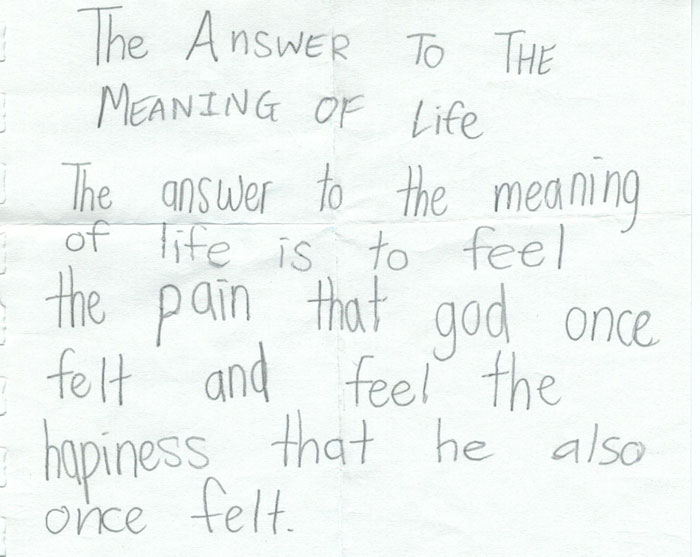 The ANSWER TO THE
MEANING OF Life
The answer to the meaning
of life is to feel
the pain that god once
felt and feel the
hapiness that he also
once felt.